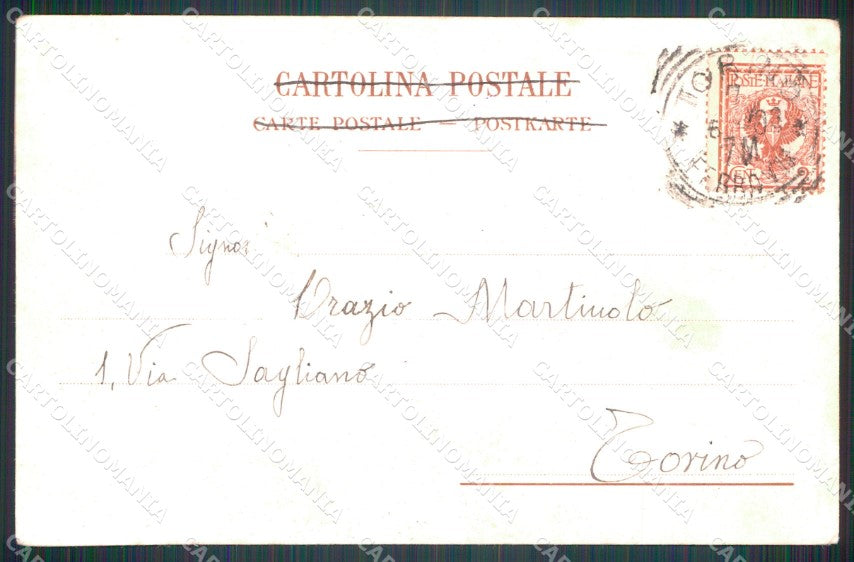 CARTOLINA POSTALE
CARTE POSTALE — POSTKARTE
POSTE ITALIANE
CENT. 2
TORINO
FERROVIA
Signor
Orazio Martinolo
1, Via Sagliano
Torino
CARTOLINOMANIA